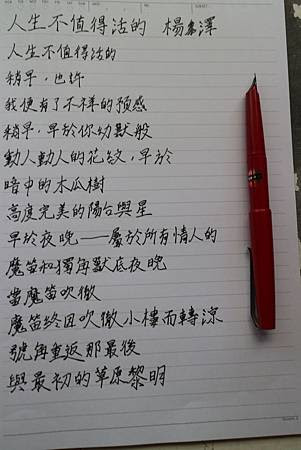 人生不值得活的 楊牧澤
人生不值得活的
稍早，也許
我便有了不祥的預感
稍早，早於你幼獸般
動人動人的花紋，早於
暗中的木瓜樹
高度完美的陽台與星
早於夜晚——屬於所有情人的
魔笛和獨角獸底夜晚
當魔笛吹徹
魔笛終因吹徹小樓而轉涼
號角重返那最後
與最初的草原黎明